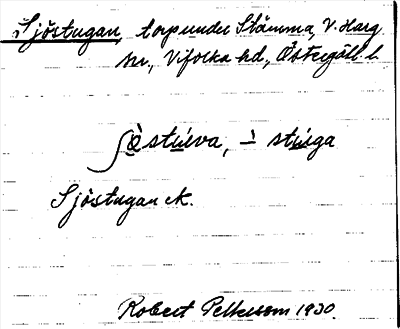 Sjöstugan, torp under Stämma, V. Harg
sn., Vifolka hd, Östergötl. l.
ʃö̀stu̇eva, ∸ stu̇ga
Sjöstugan ek.
Robert Pettersson 1930